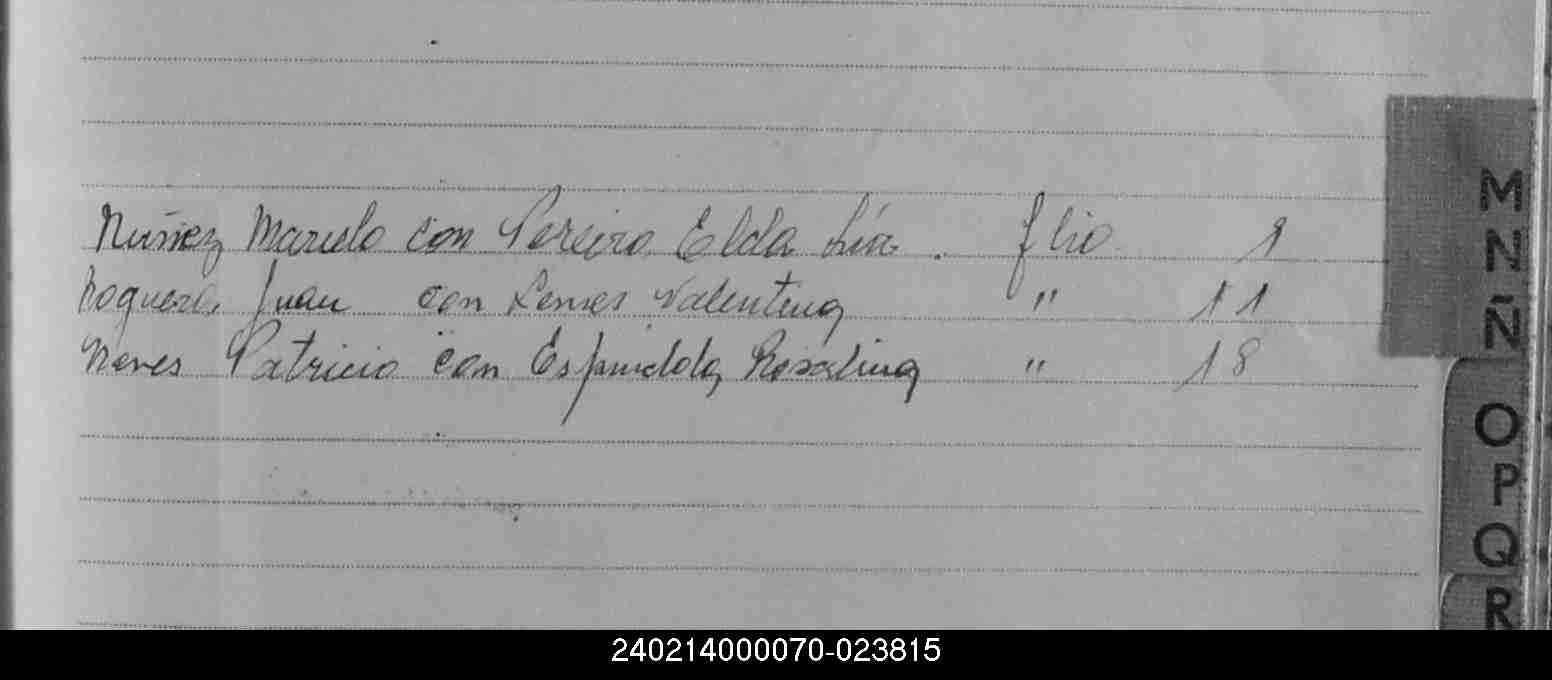 Núñez Marcelo con Pereira Elda Lía. flio 1
Noguera, Juan con Lemes Valentina " 11
Neves Patricio con Espindola, Rosalina " 18
M
N
Ñ
O
P
Q
R
240214000070-023815